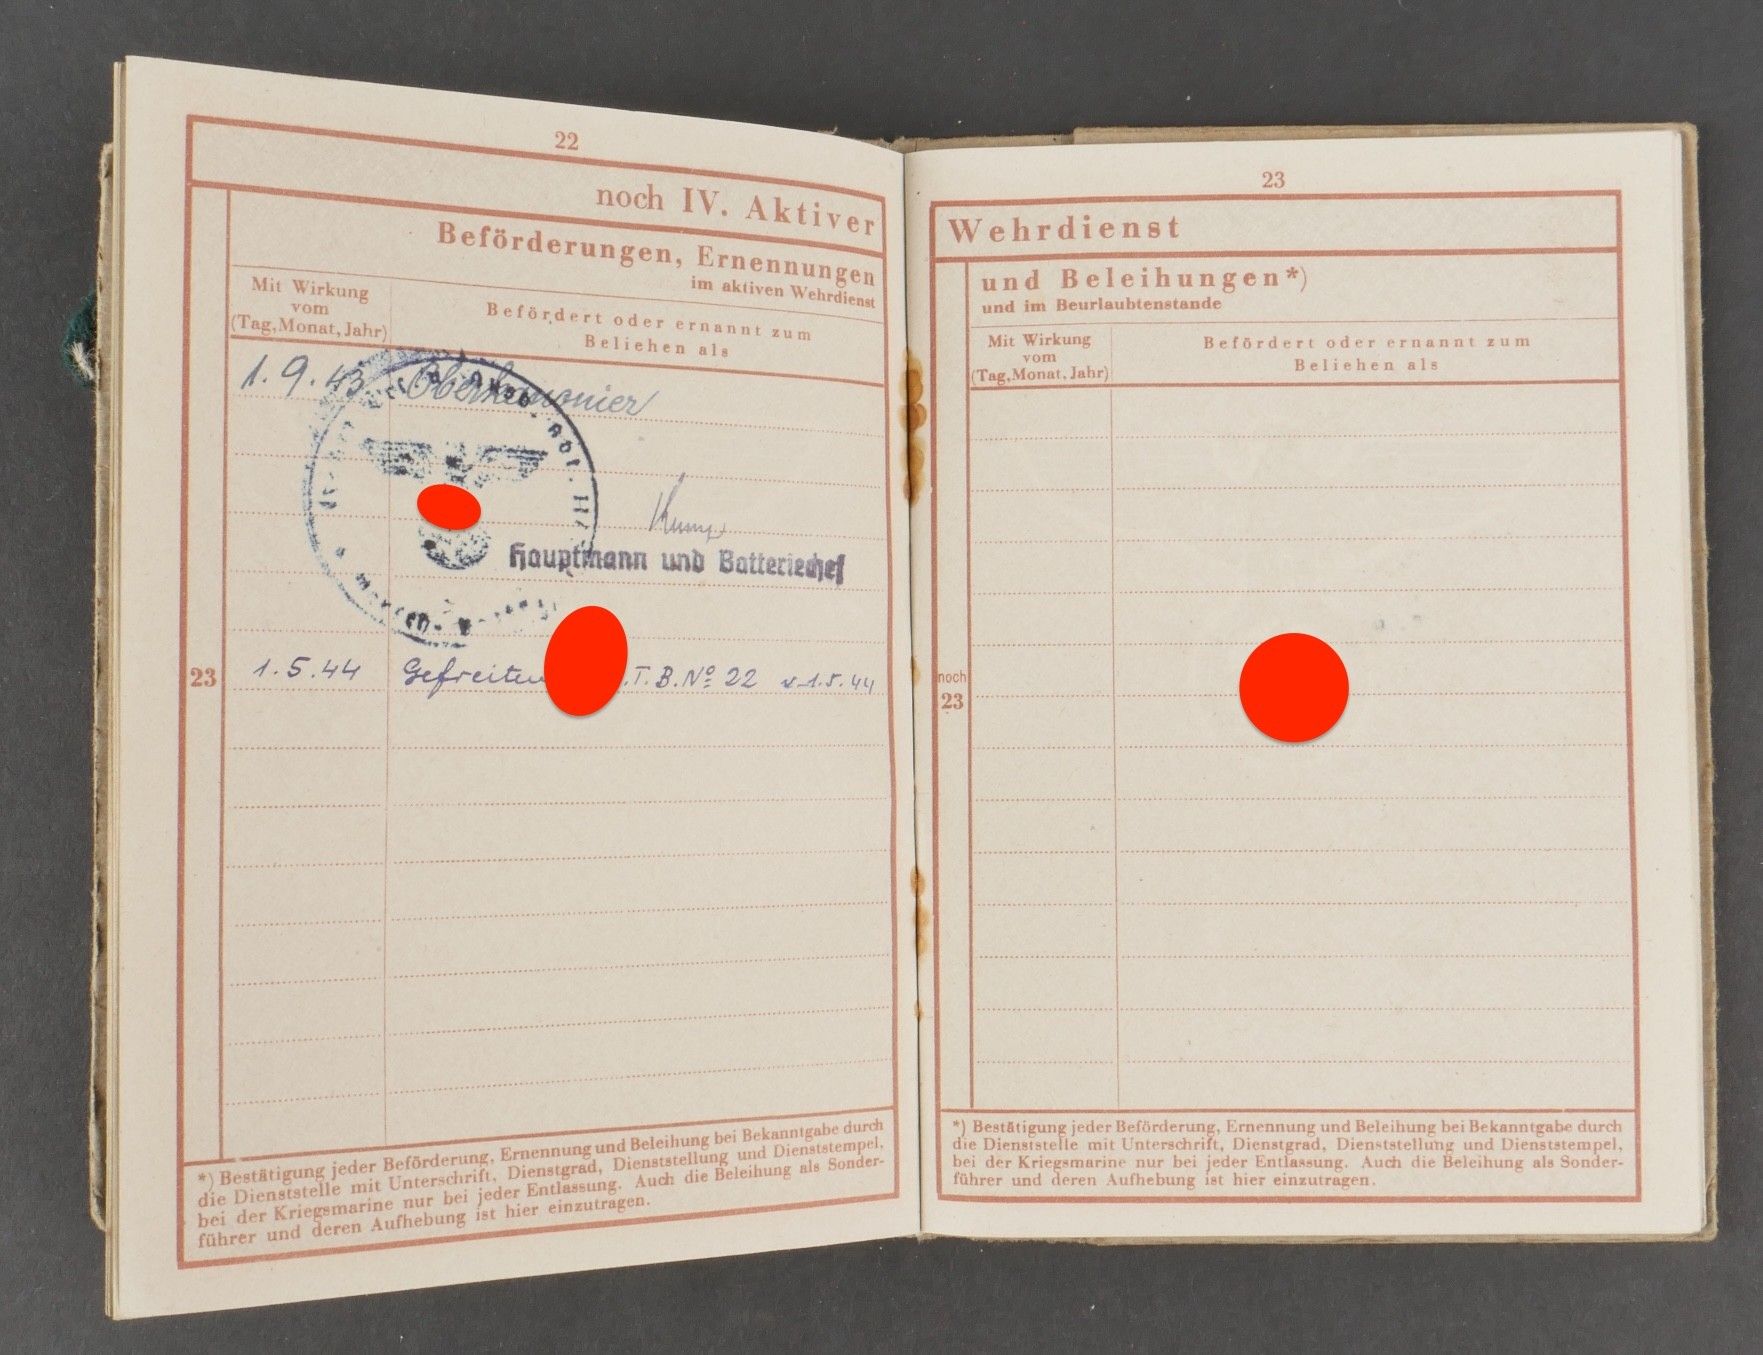 22
noch IV. Aktiver
Beförderungen, Ernennungen
im aktiven Wehrdienst
Mit Wirkung
vom
(Tag, Monat, Jahr)
Befördert oder ernannt zum
Beliehen als
1.9.43 Oberkanonier
Hauptmann und Batteriechef
23
1.5.44 Gefreiten T.B.No 22 v. 1.5.44
*) Bestätigung jeder Beförderung, Ernennung und Beleihung bei Bekanntgabe durch
die Dienststelle mit Unterschrift, Dienstgrad, Dienststellung und Dienststempel,
bei der Kriegsmarine nur bei jeder Entlassung. Auch die Beleihung als Sonder-
führer und deren Aufhebung ist hier einzutragen.
23
Wehrdienst
und Beleihungen*)
und im Beurlaubtenstande
Mit Wirkung
vom
(Tag, Monat, Jahr)
Befördert oder ernannt zum
Beliehen als
noch
23
*) Bestätigung jeder Beförderung, Ernennung und Beleihung bei Bekanntgabe durch
die Dienststelle mit Unterschrift, Dienstgrad, Dienststellung und Dienststempel,
bei der Kriegsmarine nur bei jeder Entlassung. Auch die Beleihung als Sonder-
führer und deren Aufhebung ist hier einzutragen.